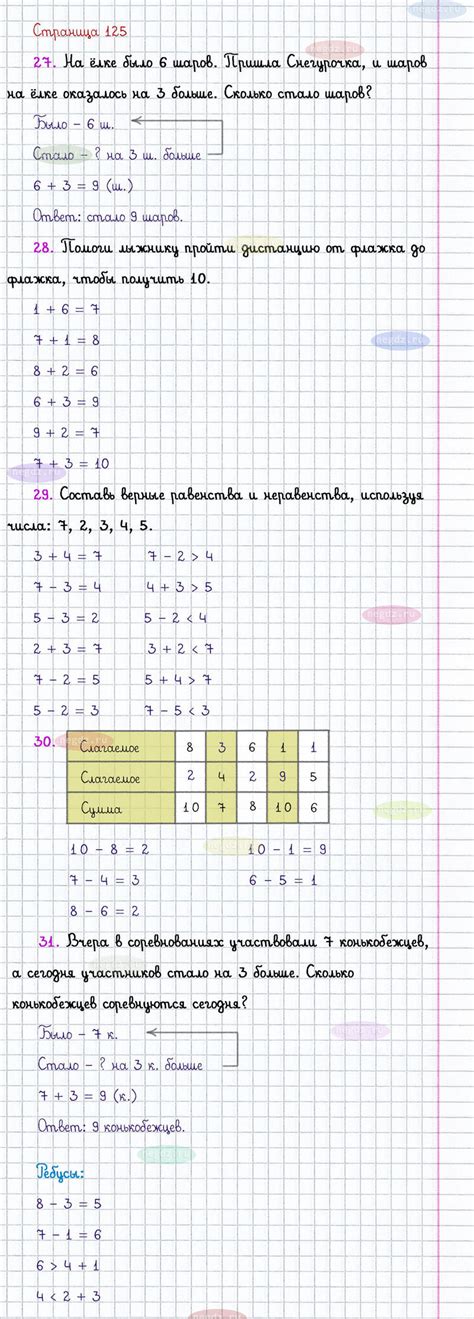 Страница 125
27. На ёлке было 6 шаров. Пришла Снегурочка, и шаров
на ёлке оказалось на 3 больше. Сколько стало шаров?
Было – 6 ш.
Стало – ? на 3 ш. больше
6 + 3 = 9 (ш.)
Ответ: стало 9 шаров.
28. Помоги лыжнику пройти дистанцию от флажка до
флажка, чтобы получить 10.
1 + 6 = 7
7 + 1 = 8
8 + 2 = 6
6 + 3 = 9
9 + 2 = 7
7 + 3 = 10
29. Составь верные равенства и неравенства, используя
числа: 7, 2, 3, 4, 5.
3 + 4 = 7 7 – 2 > 4
7 – 3 = 4 4 + 3 > 5
5 – 3 = 2 5 – 2 < 4
2 + 3 = 7 3 + 2 < 7
7 – 2 = 5 5 + 4 > 7
5 – 2 = 3 7 – 5 < 3
30. Слагаемое 8 3 6 1 1
Слагаемое 2 4 2 9 5
Сумма 10 7 8 10 6
10 – 8 = 2 10 – 1 = 9
7 – 4 = 3 6 – 5 = 1
8 – 6 = 2
31. Вчера в соревнованиях участвовали 7 конькобежцев,
а сегодня участников стало на 3 больше. Сколько
конькобежцев соревнуются сегодня?
Было – 7 к.
Стало – ? на 3 к. больше
7 + 3 = 9 (к.)
Ответ: 9 конькобежцев.
Ребусы:
8 – 3 = 5
7 – 1 = 6
6 > 4 + 1
4 < 2 + 3